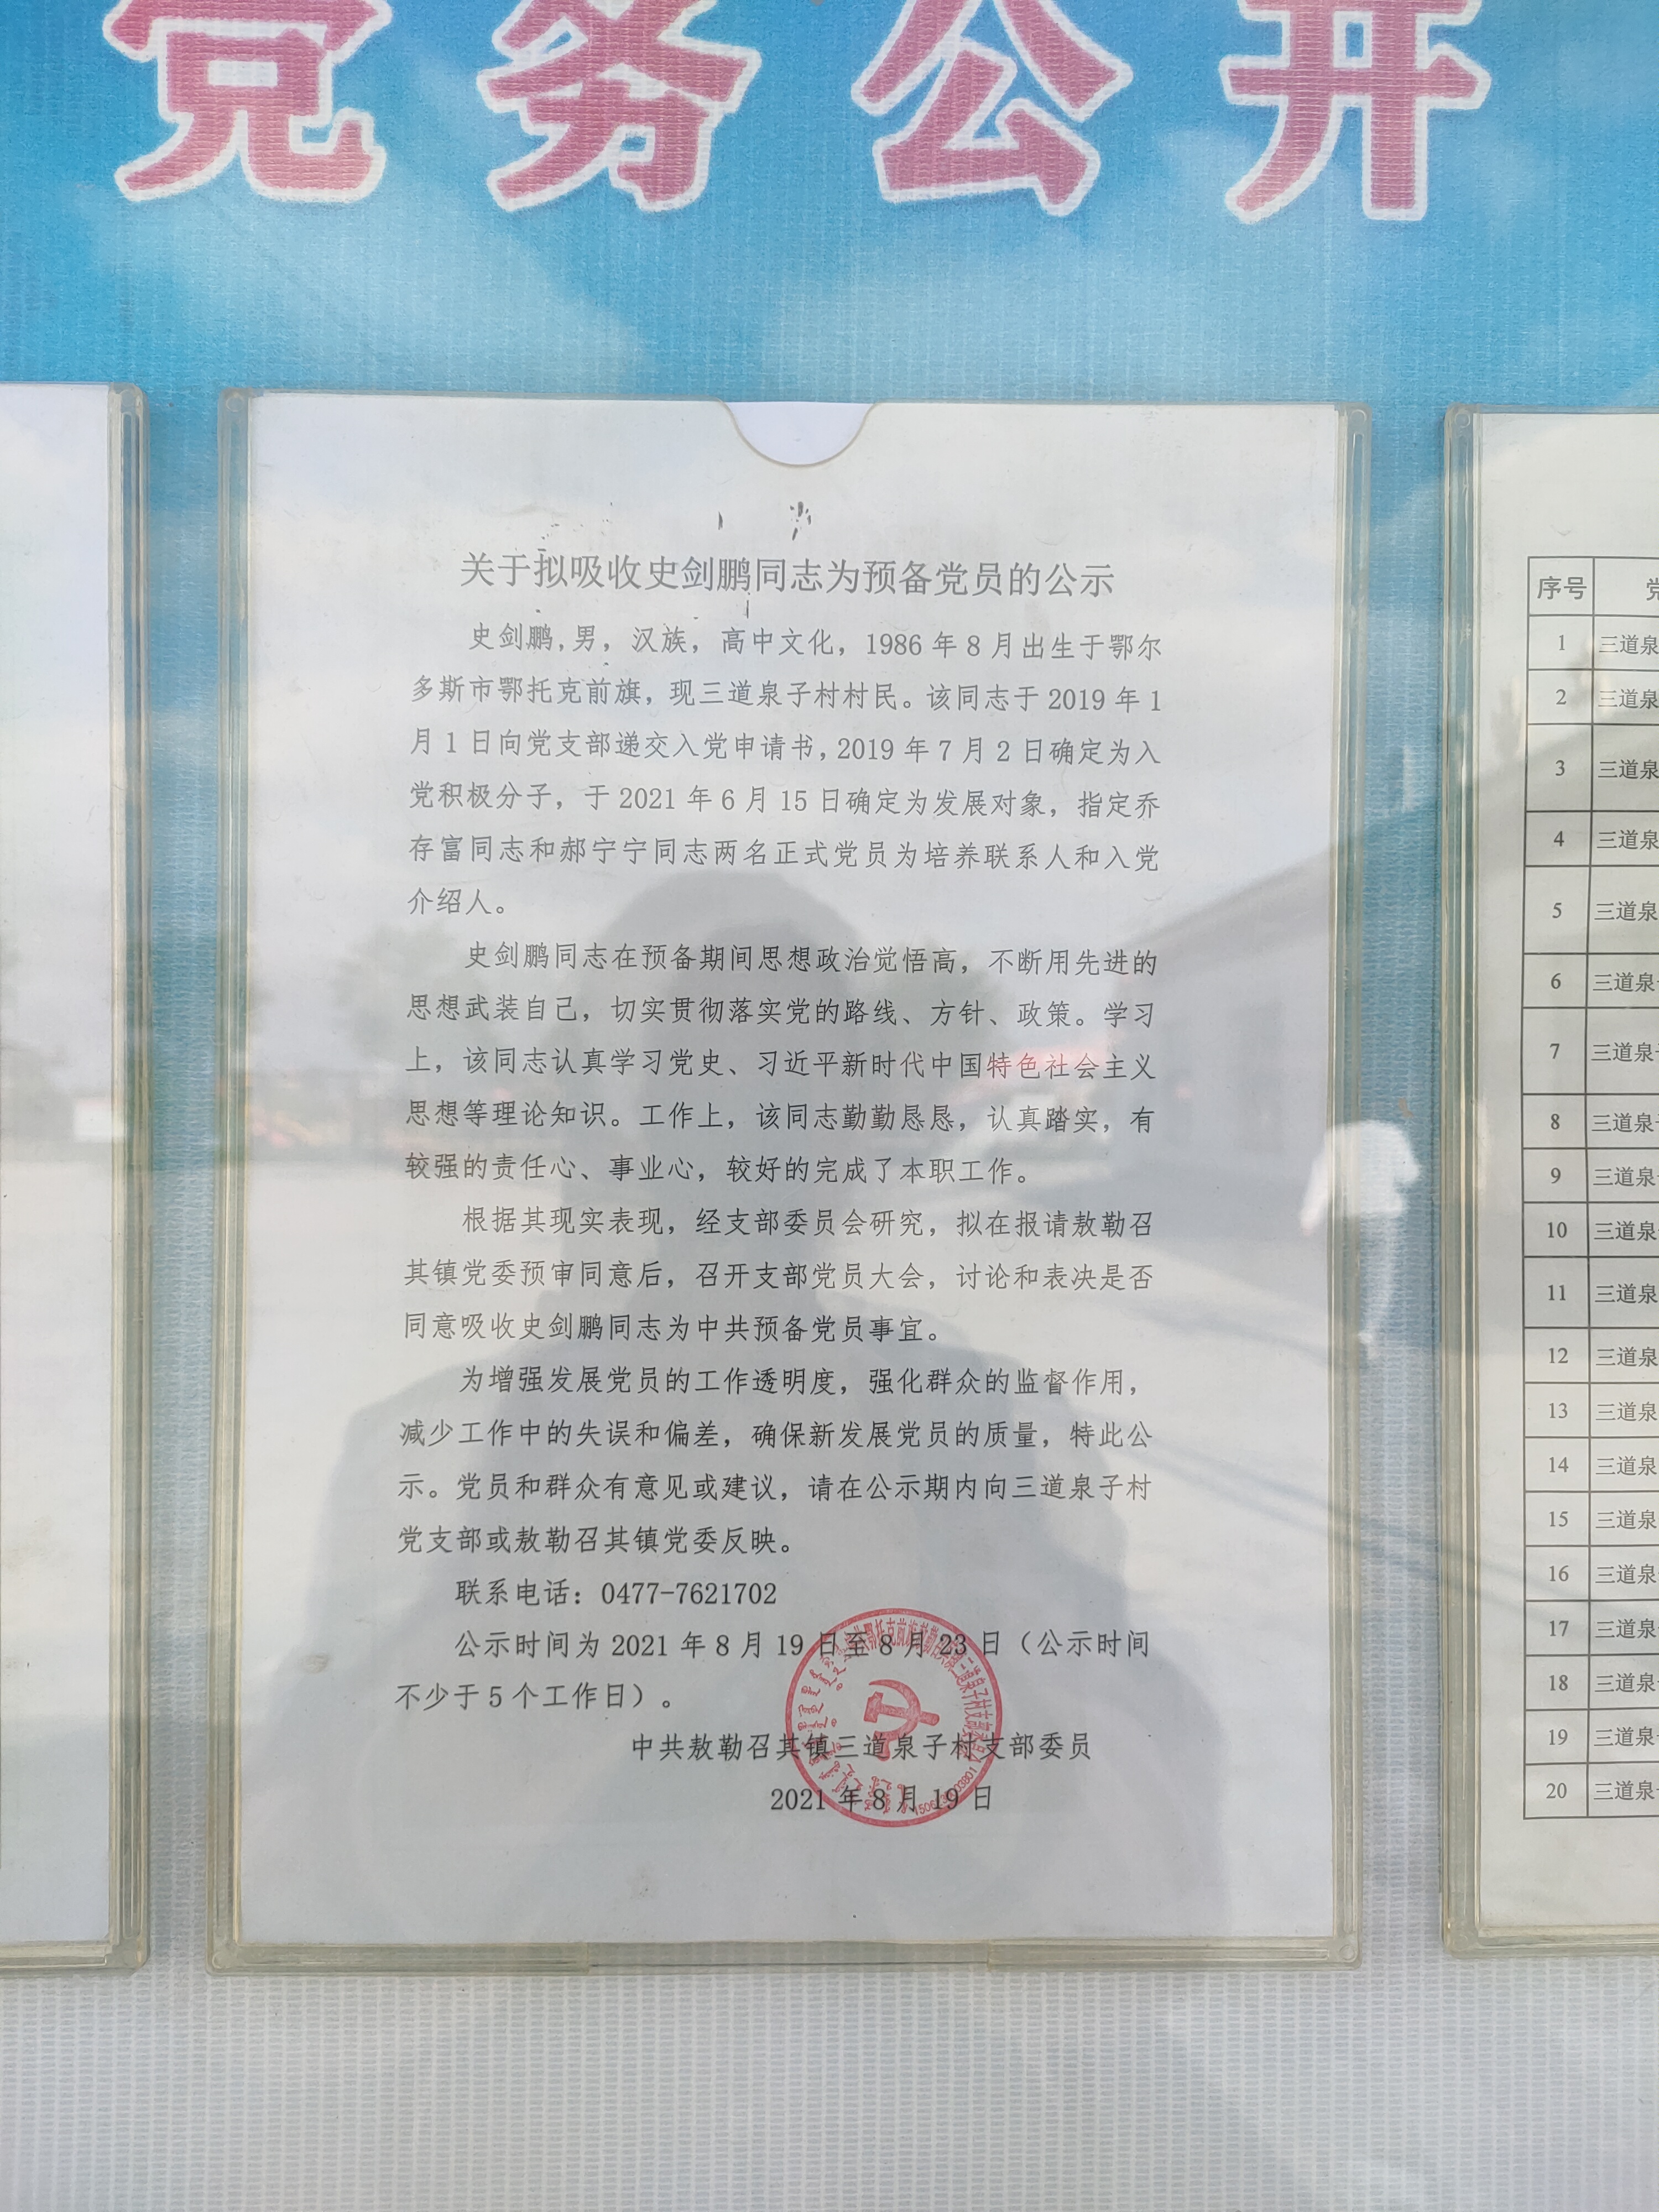 党务公开
关于拟吸收史剑鹏同志为预备党员的公示
史剑鹏,男，汉族，高中文化，1986年8月出生于鄂尔
多斯市鄂托克前旗，现三道泉子村村民。该同志于2019年1
月1日向党支部递交入党申请书,2019年7月2日确定为入
党积极分子，于2021年6月15日确定为发展对象，指定乔
存富同志和郝宁宁同志两名正式党员为培养联系人和入党
介绍人。
史剑鹏同志在预备期间思想政治觉悟高，不断用先进的
思想武装自己，切实贯彻落实党的路线、方针、政策。学习
上，该同志认真学习党史、习近平新时代中国特色社会主义
思想等理论知识。工作上，该同志勤勤恳恳，认真踏实，有
较强的责任心、事业心，较好的完成了本职工作。
根据其现实表现，经支部委员会研究，拟在报请敖勒召
其镇党委预审同意后，召开支部党员大会，讨论和表决是否
同意吸收史剑鹏同志为中共预备党员事宜。
为增强发展党员的工作透明度，强化群众的监督作用，
减少工作中的失误和偏差，确保新发展党员的质量，特此公
示。党员和群众有意见或建议，请在公示期内向三道泉子村
党支部或敖勒召其镇党委反映。
联系电话：0477-7621702
公示时间为2021年8月19日至8月23日（公示时间
不少于5个工作日）。
中共敖勒召其镇三道泉子村支部委员
2021年8月19日
序号 党
1 三道泉
2 三道泉
3 三道泉
4 三道泉
5 三道泉
6 三道泉
7 三道泉
8 三道泉
9 三道泉
10 三道泉
11 三道泉
12 三道泉
13 三道泉
14 三道泉
15 三道泉
16 三道泉
17 三道泉
18 三道泉
19 三道泉
20 三道泉